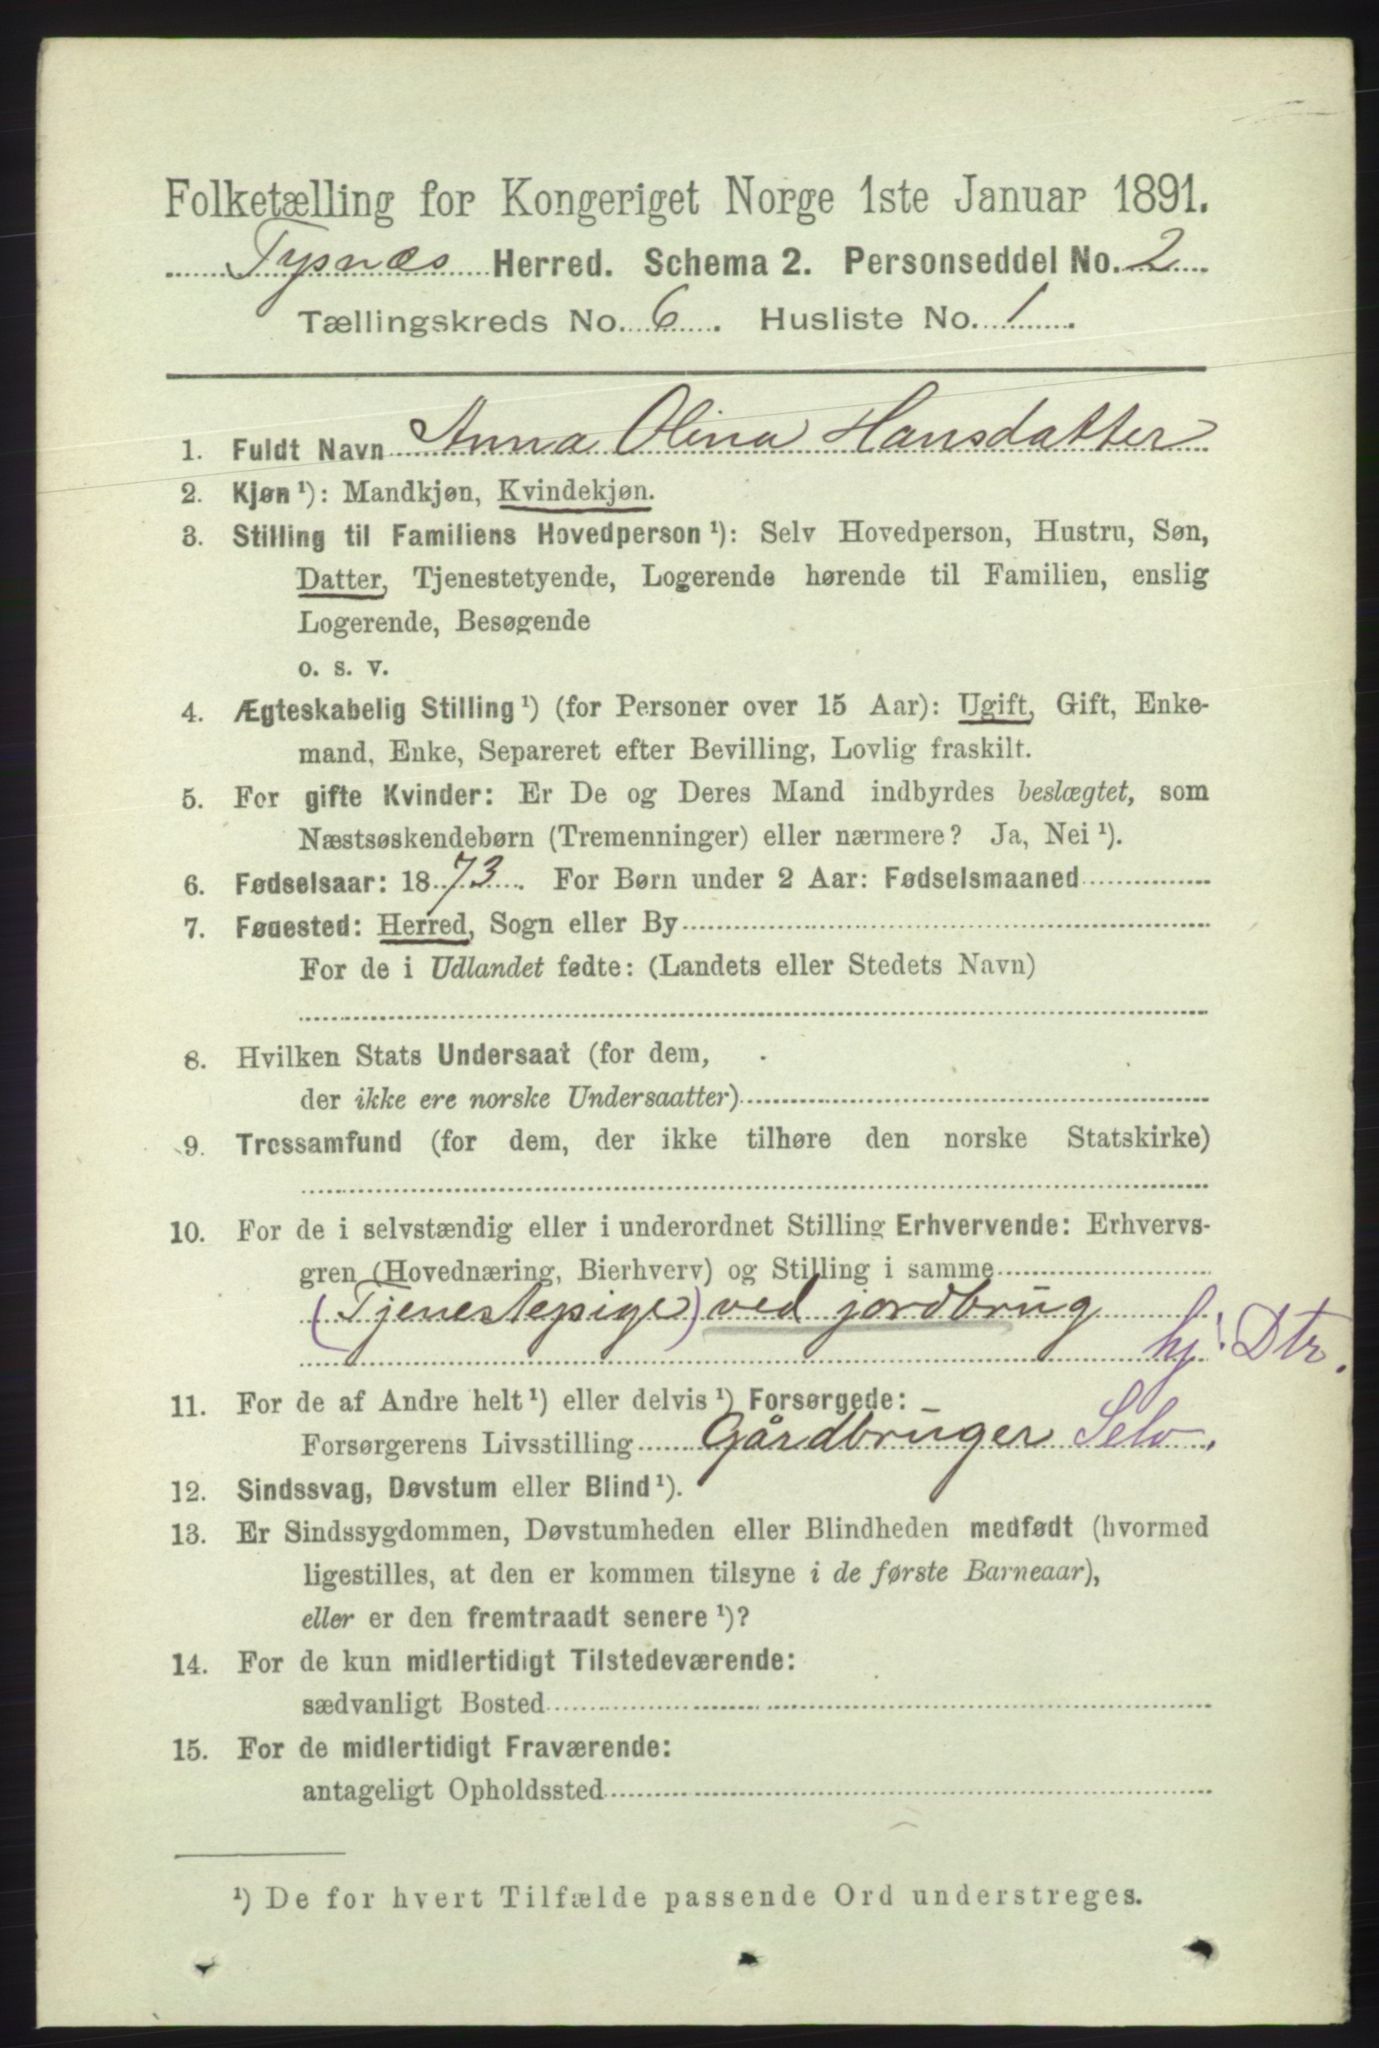 Folketælling for Kongeriget Norge 1ste Januar 1891.
Tysnæs Herred. Schema 2. Personseddel No. 2
Tællingskreds No. 6. Husliste No. 1.
1. Fuldt Navn Anna Olina Hansdatter
2. Kjøn ¹): Mandkjøn, Kvindekjøn.
3. Stilling til Familiens Hovedperson ¹): Selv Hovedperson, Hustru, Søn,
Datter, Tjenestetyende, Logerende hørende til Familien, enslig
Logerende, Besøgende
o. s. v.
4. Ægteskabelig Stilling ¹) (for Personer over 15 Aar): Ugift, Gift, Enke-
mand, Enke, Separeret efter Bevilling, Lovlig fraskilt.
5. For gifte Kvinder: Er De og Deres Mand indbyrdes beslægtet, som
Næstsøskendebørn (Tremenninger) eller nærmere? Ja, Nei ¹).
6. Fødselsaar: 1873. For Børn under 2 Aar: Fødselsmaaned
7. Fødested: Herred, Sogn eller By
For de i Udlandet fødte: (Landets eller Stedets Navn)
8. Hvilken Stats Undersaat (for dem,
der ikke ere norske Undersaatter)
9. Trossamfund (for dem, der ikke tilhøre den norske Statskirke)
10. For de i selvstændig eller i underordnet Stilling Erhvervende: Erhvervs-
gren (Hovednæring, Bierhverv) og Stilling i samme
(Tjenestepige) ved jordbrug
hj. Dtr.
11. For de af Andre helt ¹) eller delvis ¹) Forsørgede:
Forsørgerens Livsstilling Gårdbruger Selv.
12. Sindssvag, Døvstum eller Blind ¹).
13. Er Sindssygdommen, Døvstumheden eller Blindheden medfødt (hvormed
ligestilles, at den er kommen tilsyne i de første Barneaar),
eller er den fremtraadt senere ¹)?
14. For de kun midlertidigt Tilstedeværende:
sædvanligt Bosted
15. For de midlertidigt Fraværende:
antageligt Opholdssted
¹) De for hvert Tilfælde passende Ord understreges.